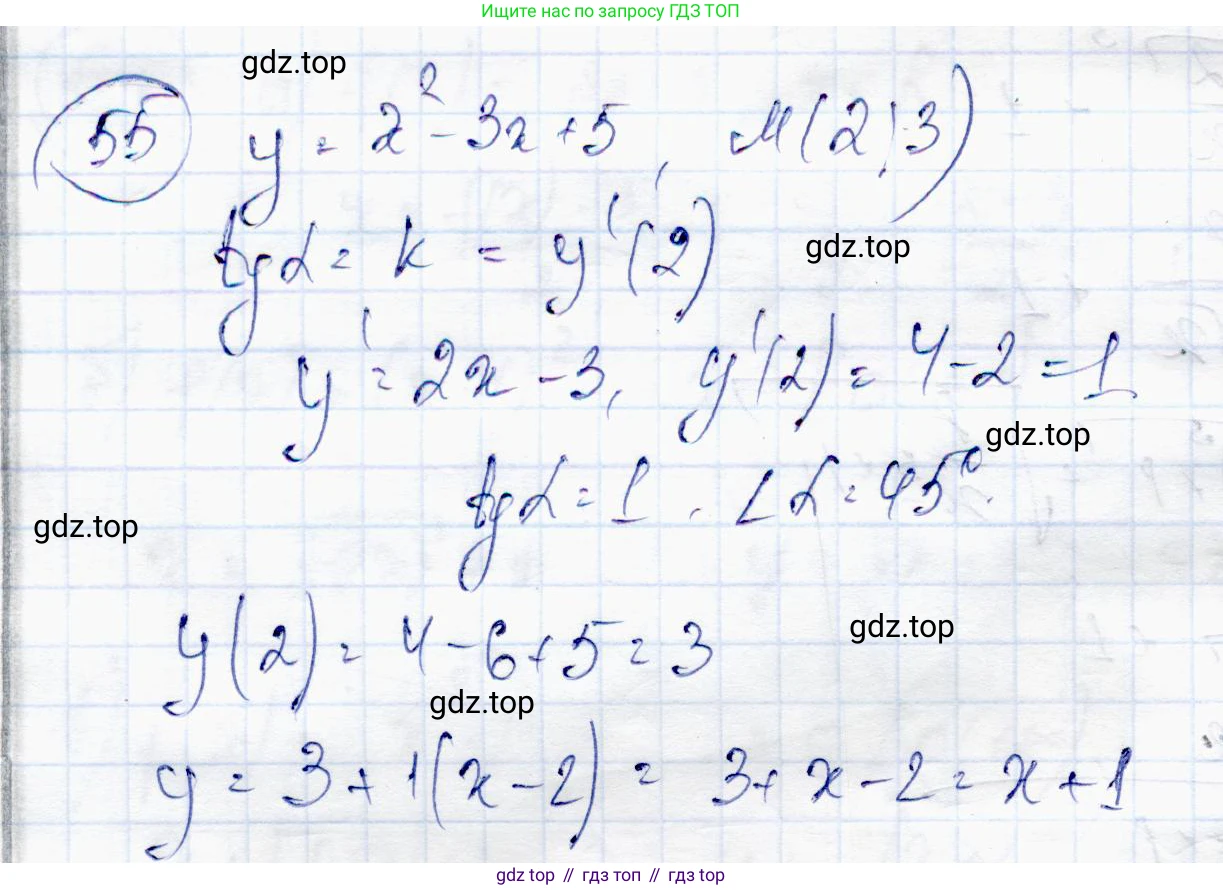 Ищите нас по запросу ГДЗ ТОП
gdz.top
55 y = x² - 3x + 5, M(2; 3)
tgα = k = y'(2)
gdz.top
y' = 2x - 3, y'(2) = 4 - 2 = 1
gdz.top
tgα = 1. ∠α = 45°.
gdz.top
y(2) = 4 - 6 + 5 = 3
gdz.top
gdz.top
y = 3 + 1(x - 2) = 3 + x - 2 = x + 1
gdz top // гдз топ // гдз top